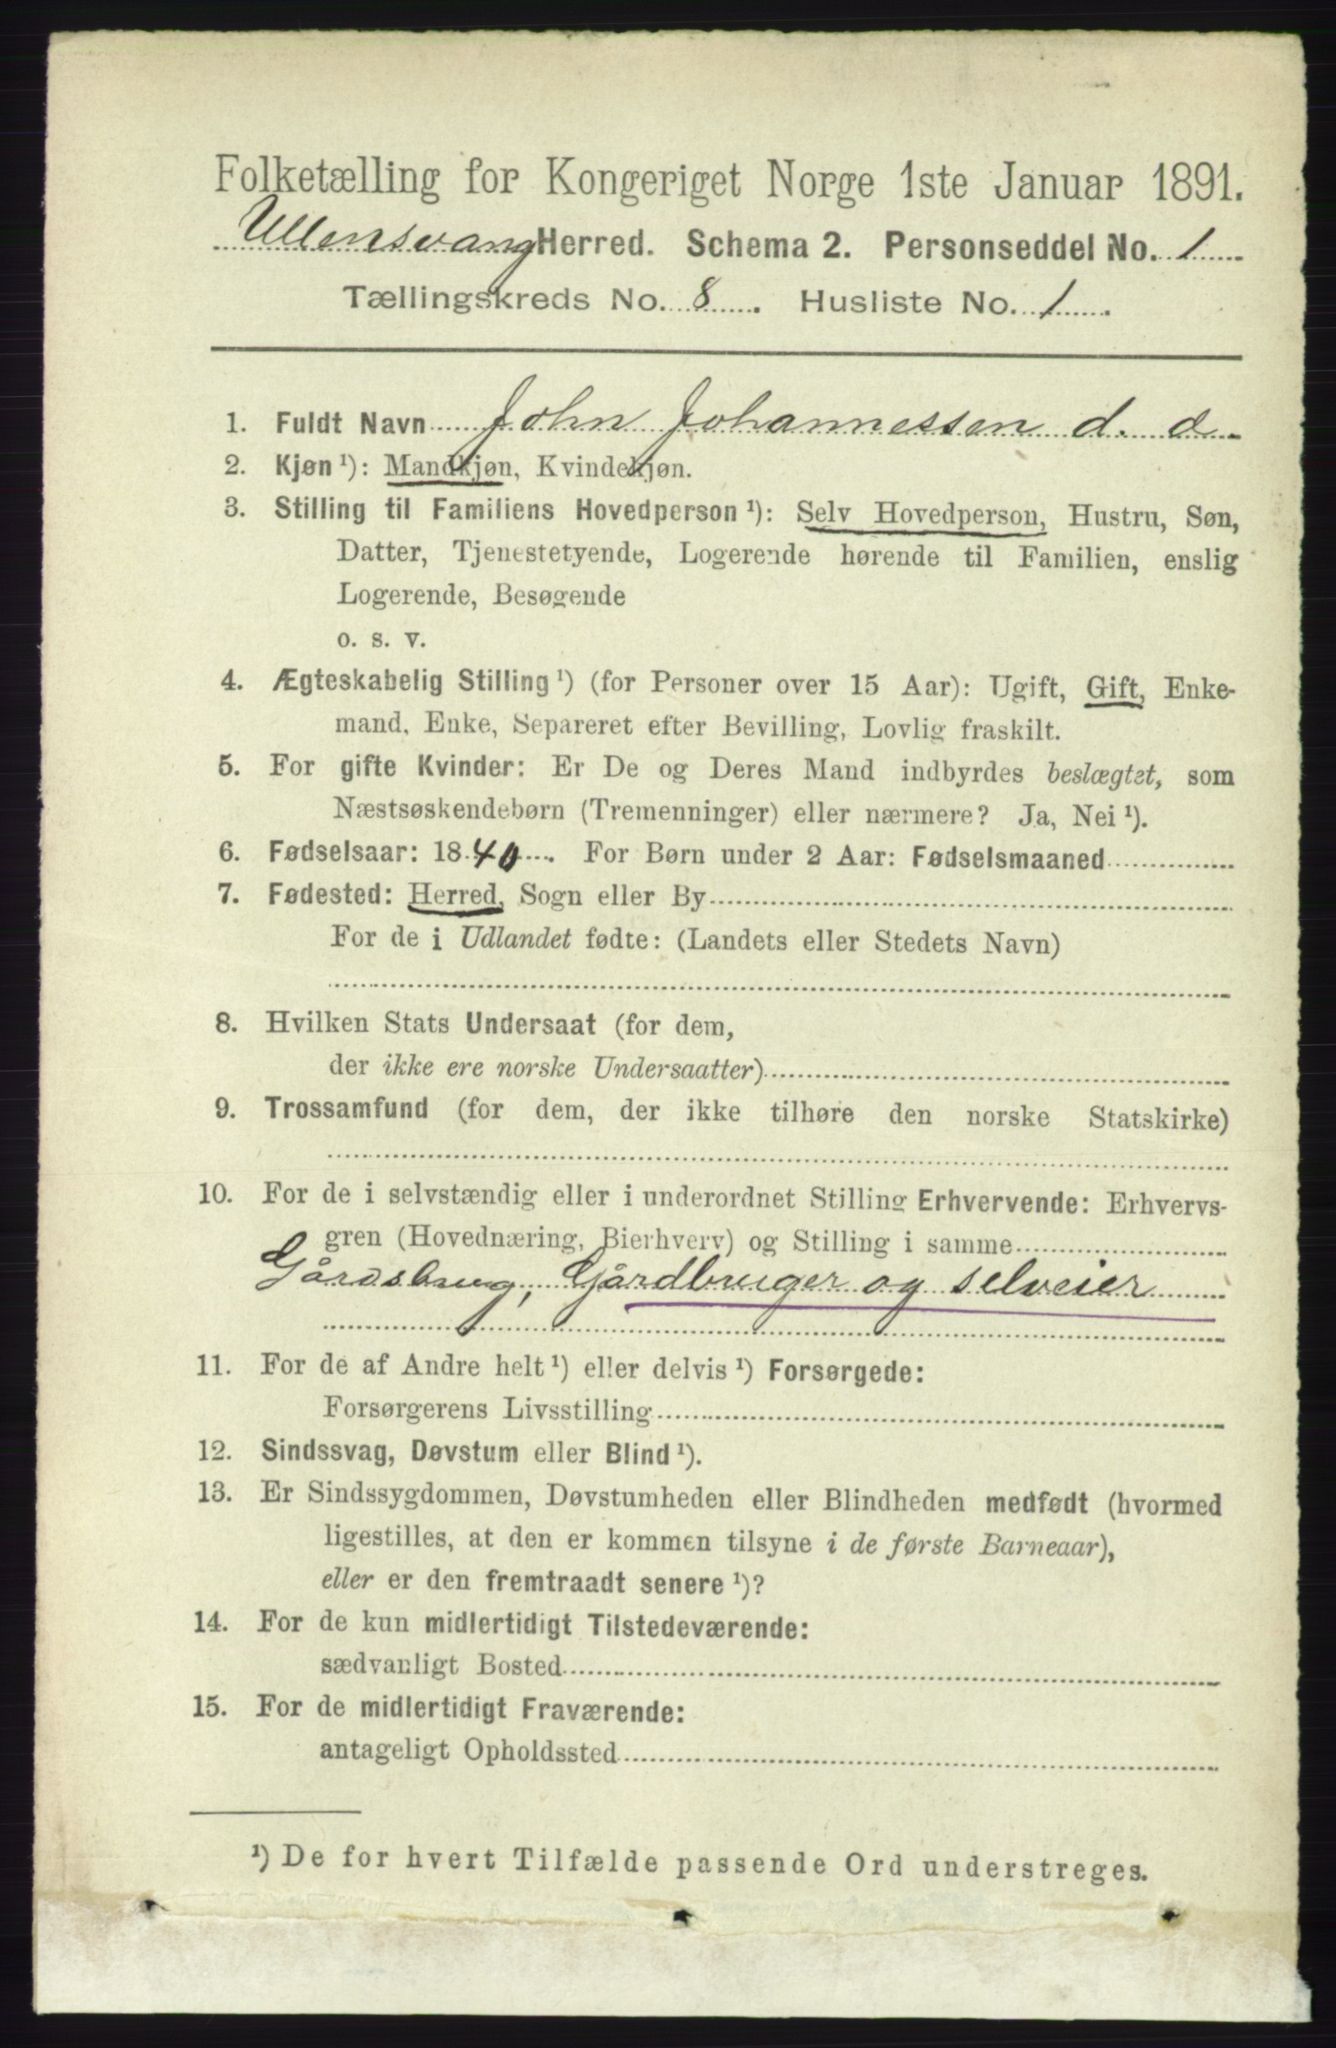 Folketælling for Kongeriget Norge 1ste Januar 1891.
Ullensvang Herred. Schema 2. Personseddel No. 1
Tællingskreds No. 8. Husliste No. 1.
1. Fuldt Navn John Johannessen d. æ
2. Kjøn¹): Mandkjøn, Kvindekjøn.
3. Stilling til Familiens Hovedperson¹): Selv Hovedperson, Hustru, Søn,
Datter, Tjenestetyende, Logerende hørende til Familien, enslig
Logerende, Besøgende
o. s. v.
4. Ægteskabelig Stilling¹) (for Personer over 15 Aar): Ugift, Gift, Enke-
mand, Enke, Separeret efter Bevilling, Lovlig fraskilt.
5. For gifte Kvinder: Er De og Deres Mand indbyrdes beslægtet, som
Næstsøskendebørn (Tremenninger) eller nærmere? Ja, Nei¹).
6. Fødselsaar: 1840. For Børn under 2 Aar: Fødselsmaaned
7. Fødested: Herred, Sogn eller By
For de i Udlandet fødte: (Landets eller Stedets Navn)
8. Hvilken Stats Undersaat (for dem,
der ikke ere norske Undersaatter)
9. Trossamfund (for dem, der ikke tilhøre den norske Statskirke)
10. For de i selvstændig eller i underordnet Stilling Erhvervende: Erhvervs-
gren (Hovednæring, Bierhverv) og Stilling i samme
Gårdsbrug, Gårdbruger og selveier
11. For de af Andre helt¹) eller delvis¹) Forsørgede:
Forsørgerens Livsstilling
12. Sindssvag, Døvstum eller Blind¹).
13. Er Sindssygdommen, Døvstumheden eller Blindheden medfødt (hvormed
ligestilles, at den er kommen tilsyne i de første Barneaar),
eller er den fremtraadt senere¹)?
14. For de kun midlertidigt Tilstedeværende:
sædvanligt Bosted
15. For de midlertidigt Fraværende:
antageligt Opholdssted
¹) De for hvert Tilfælde passende Ord understreges.